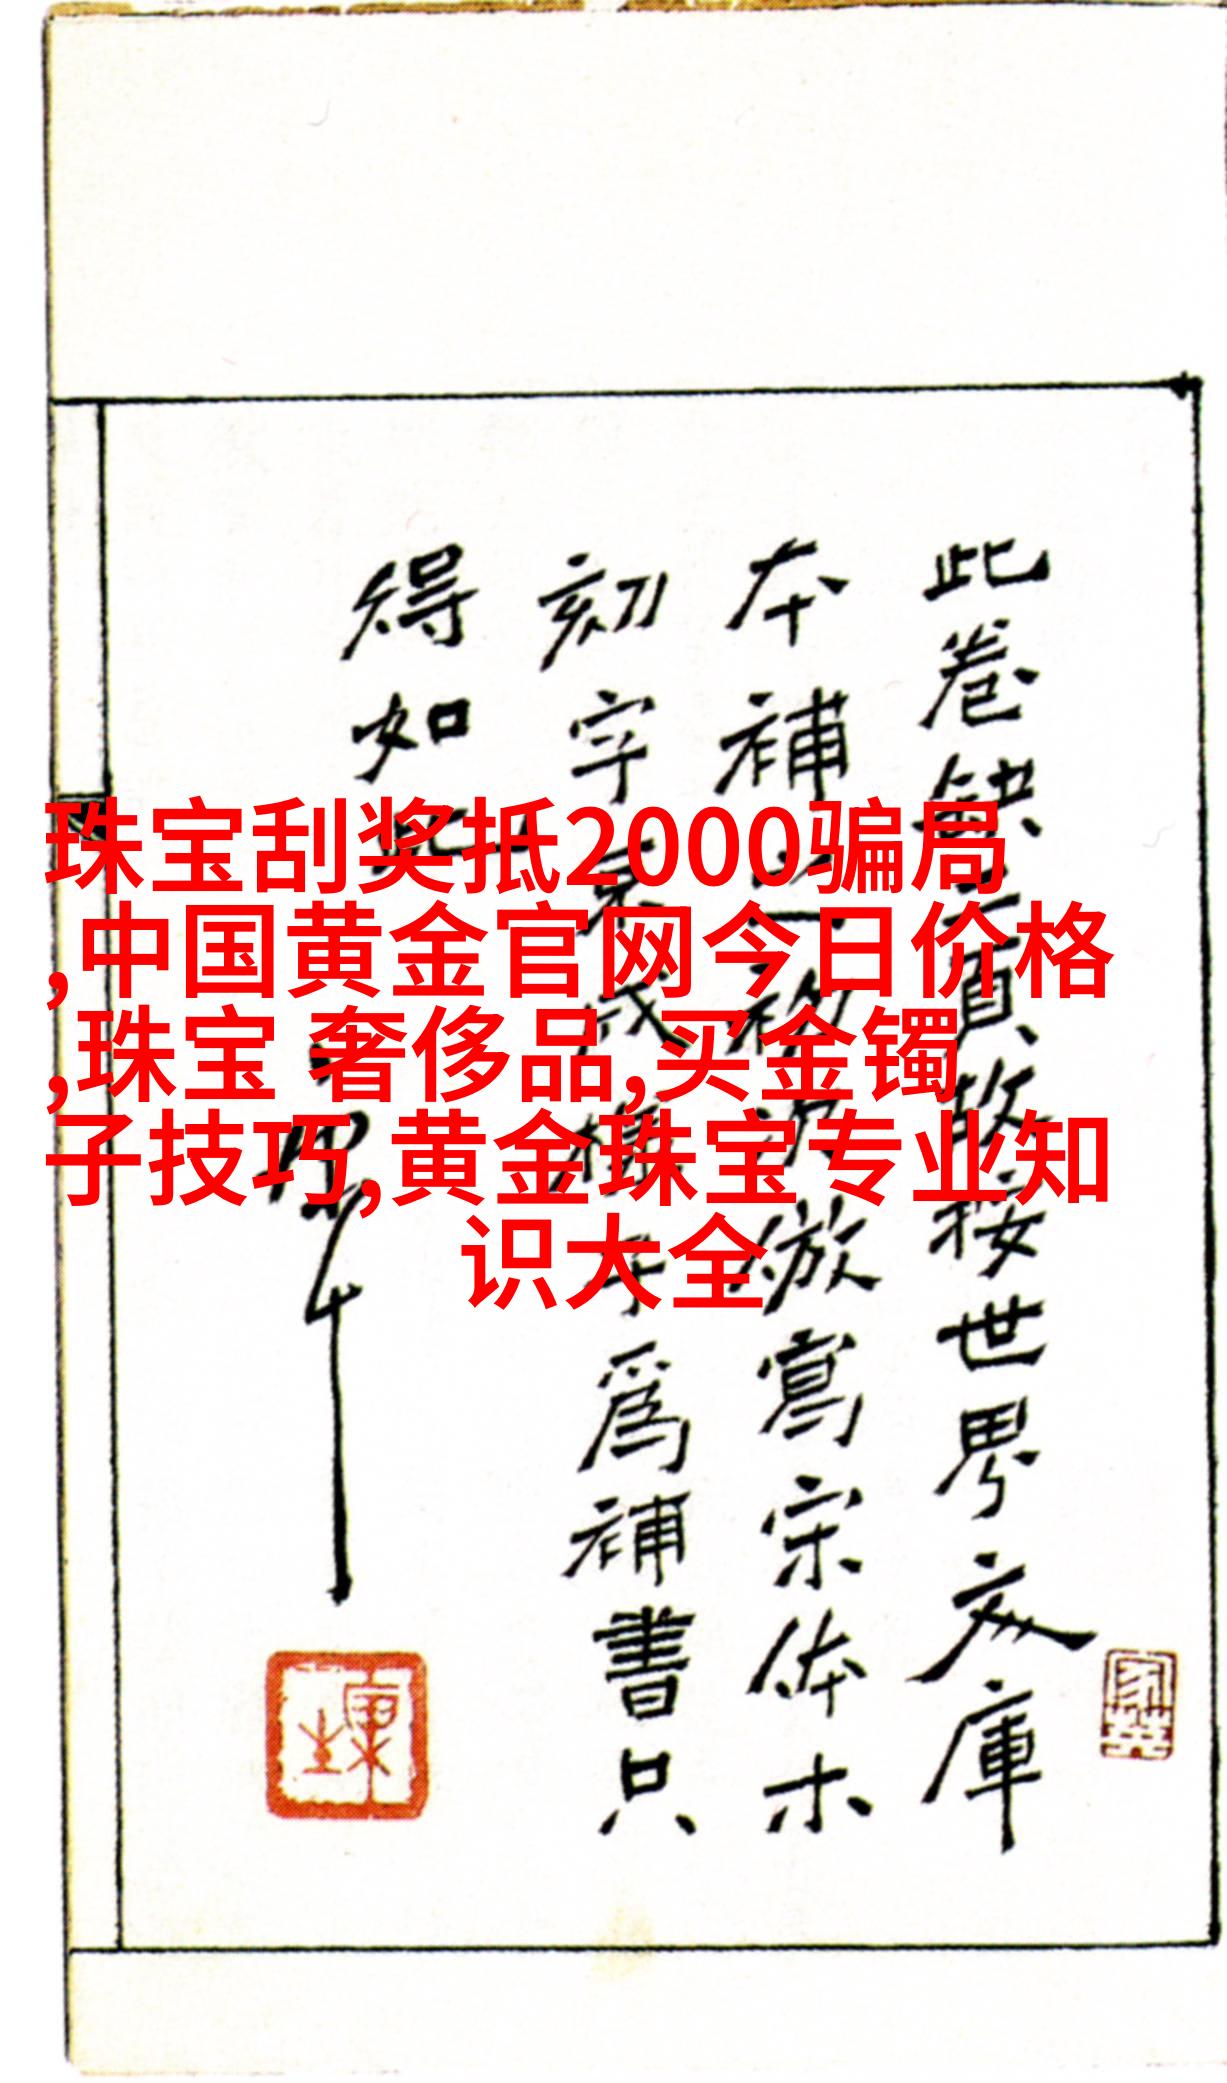 珠宝刮奖抵2000骗局
,中国黄金官网今日价格
,珠宝 奢侈品,买金镯
子技巧,黄金珠宝专业知
识大全
此卷缺 頁故按世界文庫
本補 初 倣寫宗体木
刻字 成 手爲補書只
得如此